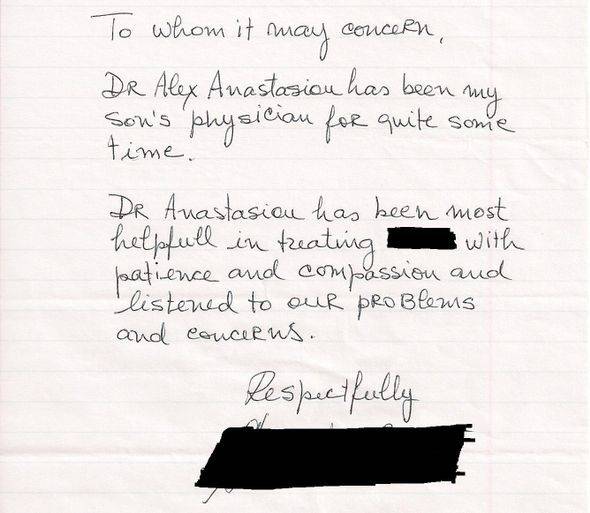 To whom it may concern,
Dr Alex Anastasiou has been my
son's physician for quite some
time.
Dr Anastasiou has been most
helpfull in treating with
patience and compassion and
listened to our problems
and concerns.
Respectfully